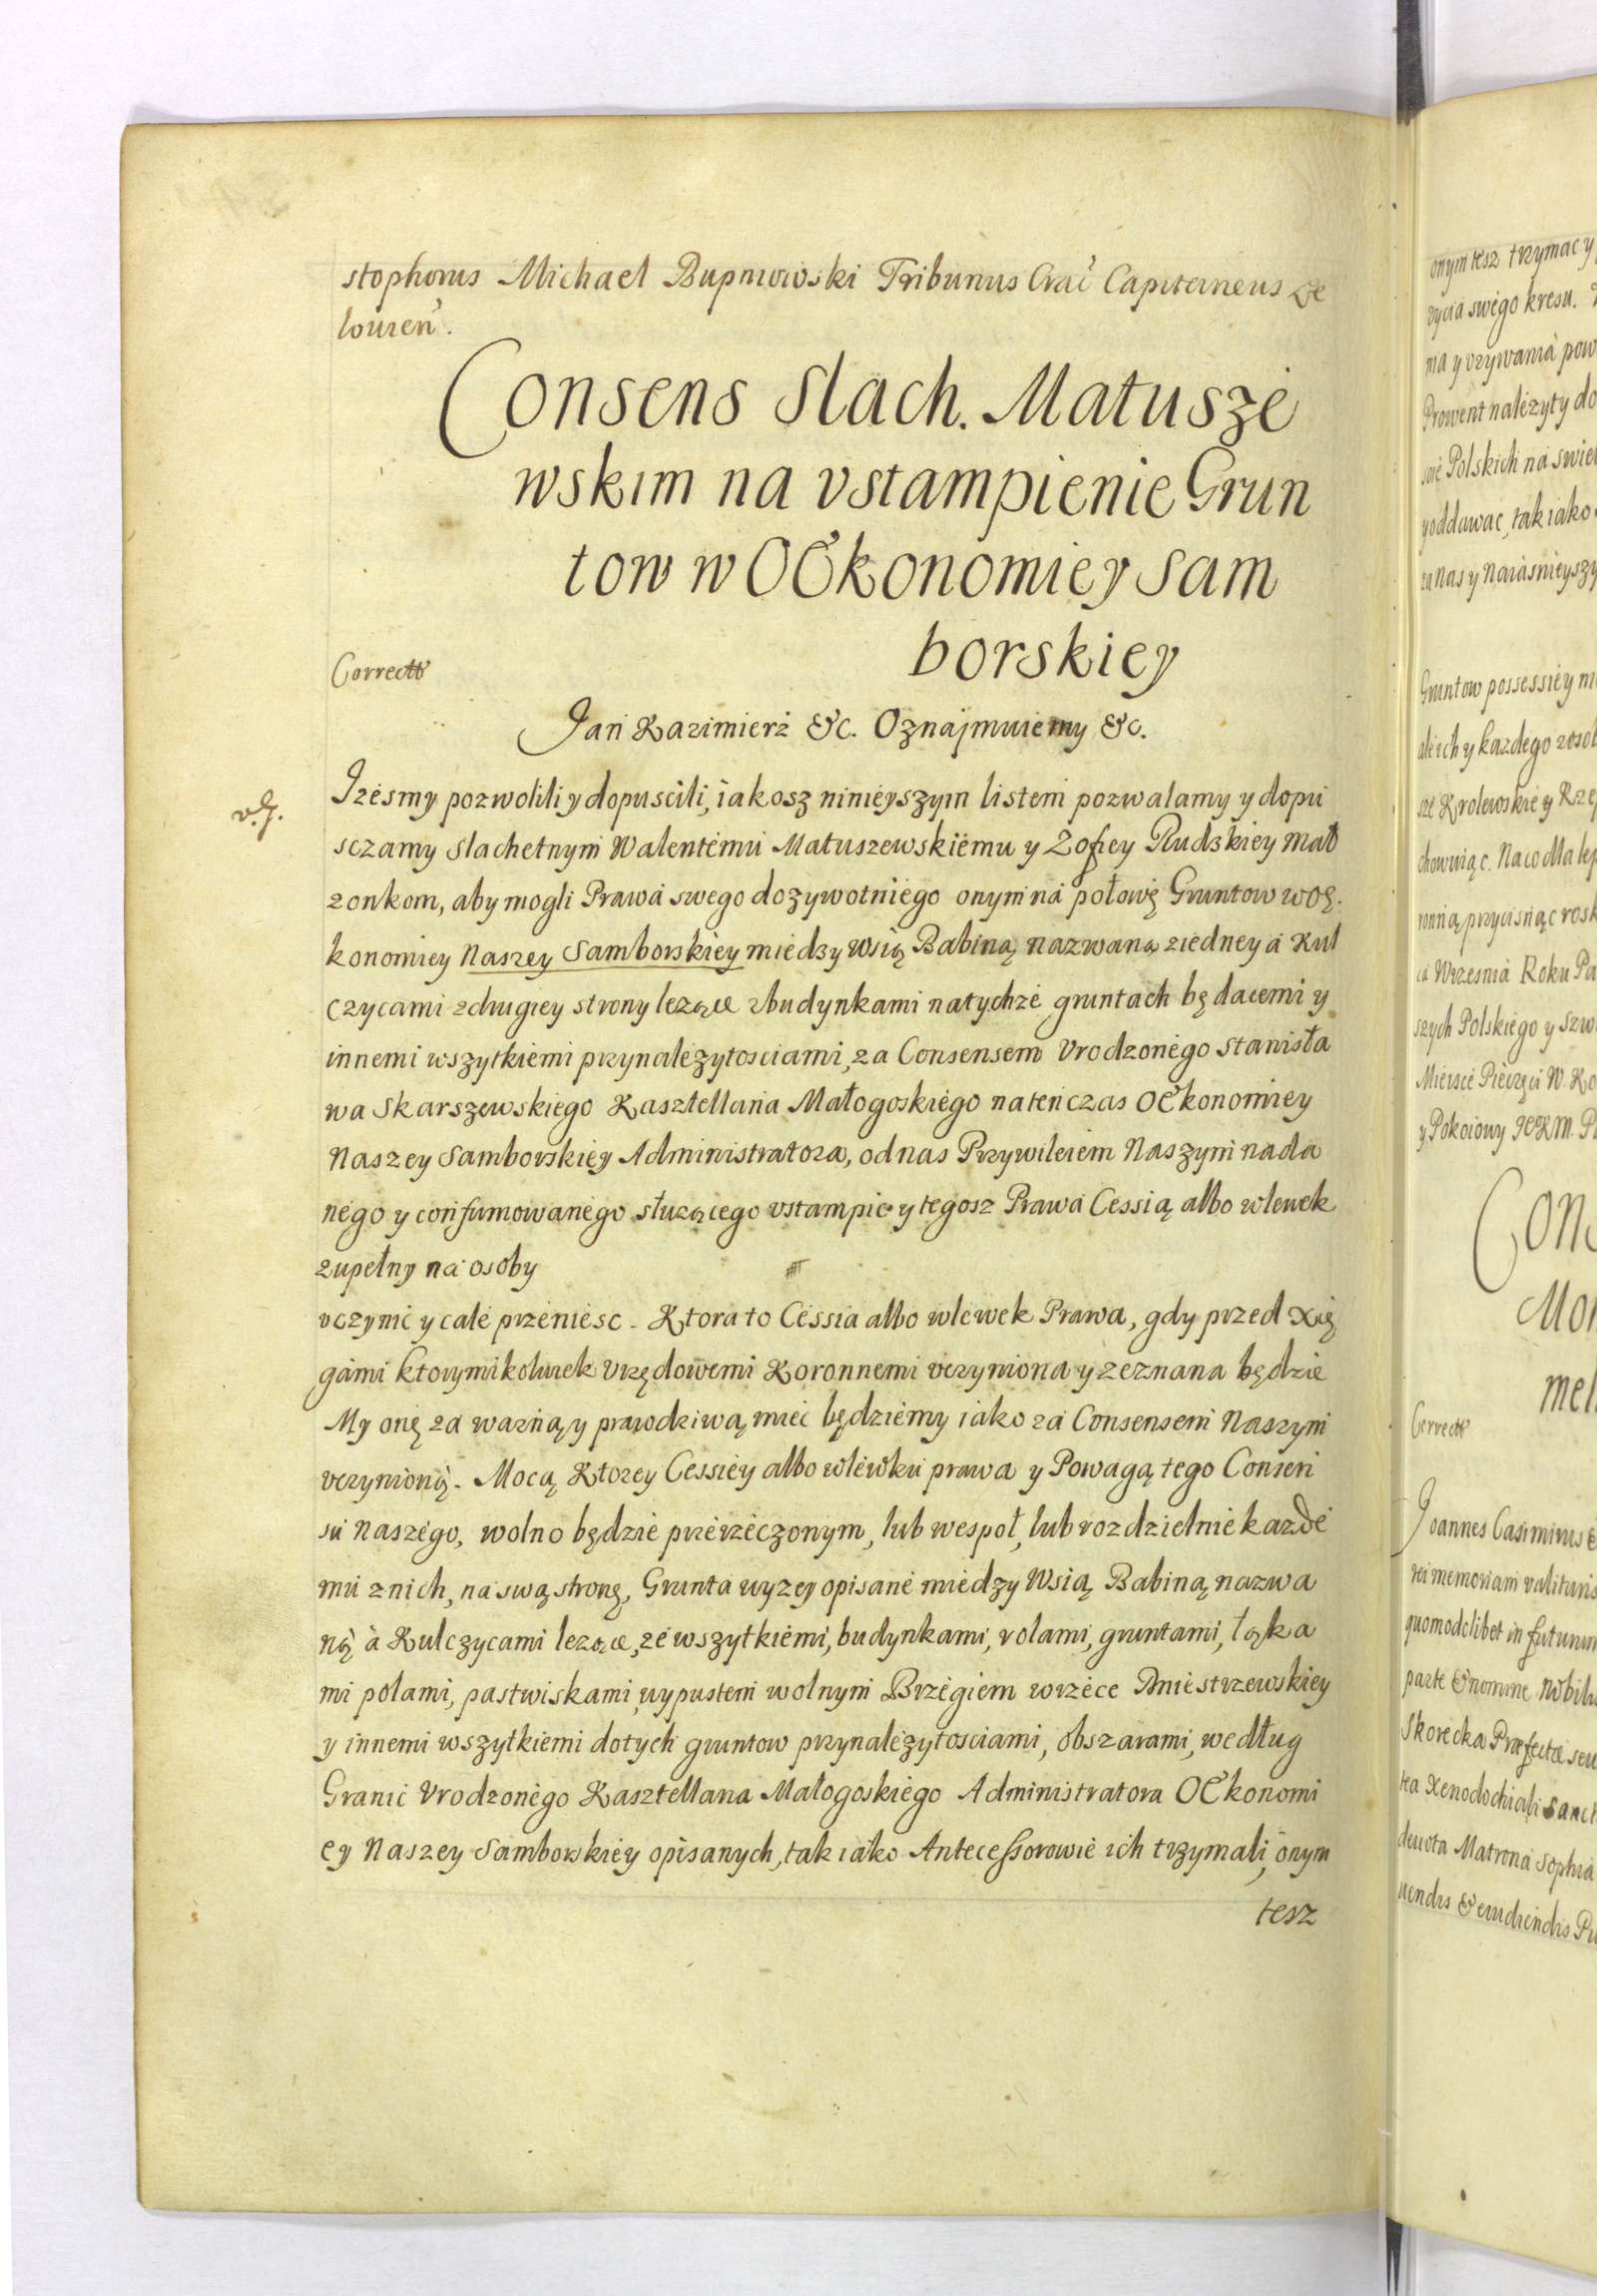 stophorus Michael Rupniowski Tribunus Crac̃ Capitaneus Le
louien̄.
Consens Slach. Matusze
wskim na vstampienie Grun
tow w OEkonomiey Sam
borskiey
Correct̃
Jan Kazimierz &c. Oznajmuiemy &c.
Jzesmy pozwolili y dopuscili, iakosz ninieyszym listem pozwalamy y dopu
sczamy Slachetnym Walentemu Matuszewskiemu y Zofiey Rudskiey Mał
zonkom, aby mogli Prawa swego dozywotniego onym na połowę Gruntow w OE
konomiey Naszey Samborskiey miedzy wsią Babiną nazwaną ziedney a Kul
czycami zdrugiey strony lezące zbudynkami natychze gruntach będacemi y
innemi wszytkiemi przynalezytosciami, za Consensem Vrodzonego Stanisła
wa Skarszewskiego Kasztellana Małogoskiego natenczas OEkonomiey
Naszey Samborskiey Administratora, od nas Przywileiem Naszym nada
nego y confirmowanego słuzącego vstampic y tegosz Prawa Cessią albo wlewek
zupełny na osoby
vczynic y cale przeniesc. Ktora to Cessia albo wlewek Prawa, gdy przed Xię
gami ktorymikolwiek Vrzędowemi Koronnemi vczyniona y zeznana będzie
My onę za wazną y prawdziwą miec będziemy iako za Consensem Naszym
vczynioną. Mocą Ktorey Cessiey albo wlewku prawa y Powagą tego Consen
su Naszego, wolno będzie przerzeczonym, lub wespoł, lub rozdzielnie kazde
mu z nich, na swą stronę, Grunta wyzey opisane miedzy Wsią Babiną nazwa
ną à Kulczycami lezące, ze wszytkiemi, budynkami, rolami, gruntami, łąka
mi polami, pastwiskami, wypustem wolnym Brzegiem wrzece Dniestrzewskiey
y innemi wszytkiemi dotych gruntow przynalezytosciami, obszarami, według
Granic Vrodzonego Kasztellana Małogoskiego Administratora OEkonomi
ey Naszey Samborskiey opisanych, tak iako Antecessorowie ich trzymali, onym
tesz
onym tesz trzymac y
zycia swego kresu.
nia y vzywania pow
Prowent nalezyty do
Polskich na swie
y oddawac, tak iako
za nas y Naiasnieyszy
Gruntow possessiey
ale ich y kazdego zosob
Krolewskiey Rze
chowuiąc. Na co dla lep
przycisnąc rosk
Wrzesnia Roku Pa
szych Polskiego y Szw
Mieisce Pieczęci W. Ko
y Pokoiowy JKM. P
Cons
Mon
mel
Correct̃
Joannes Casimirus &
rei memoriam valituris
quomodolibet in futurum
parte & nomine Nobilis
Skorecka Præfecta seu
Xenodochiali Sanct
deuota Matrona Sophia
uendis & erudiendis Pu